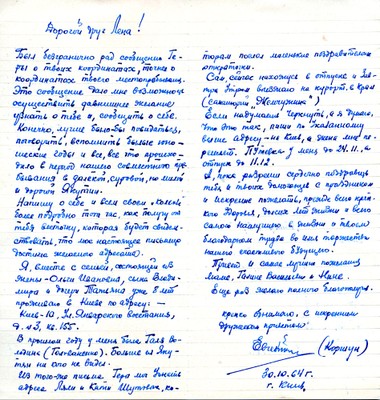 Дорогой друг Лена!
Был безгранично рад сообщению Ге-
ры о твоих координатах, точнее о
координатах твоего местопребывания.
Это сообщение дало мне возможность
осуществить давнишнее желание
узнать о тебе и, сообщить о себе.
Конечно, лучше было-бы повидаться,
поговорить, вспомнить былые юно-
шеские годы и все, все что происхо-
дило в период нашего совместного пре-
бывания в далекой, суровой, но милой
и дорогой Якутии.
Напишу о себе и всем своем
более подробно тогда, как получу от
тебя весточку, которая будет свиде-
тельствовать, что мое настоящее письмо
достигло желаемого адресата.
Я, вместе с семьей, состоящей из
жены - Ольги Ивановны, сына Влади-
мира и дочери Татьяны уже 8 лет
проживаю в Киеве по адресу: -
Киев-10, ул. Январского восстания,
д. №3, кв. 165.
В прошлом году у меня была Галя Во-
лодина. Больше из Яку-
тии ни кого не видел.
Из того-же письма Геры мы узнали
адреса Ляли и Кати, ко-
торым послал маленькие поздравительные
открытки.
Сам, сейчас нахожусь в отпуске и
выезжаю на курорт в Крым
(санаторий "Жемчужина").
Если надумаешь черкнуть, а я думаю,
что это так, пиши по указанному
выше адресу - на Киев, а жена мне пе-
решлет. Путевка у меня до 24.11, а
отпуск до 11.12.
А, пока разреши сердечно поздравить
тебя и твоих домочадцев с праздником
и искренне пожелать, прежде всего креп-
кого здоровья, долгих лет жизни и всего
самого наилучшего в жизни и твоем
благородном труде во имя торжества
нашего счастливого будущего.
Привет и самые лучшие пожелания
маме,
Еще раз желаю полного благополучия.
крепко обнимаю, с искренним
дружеским приветом:
(Коршун)
30.10.64 г.
г. Киев.